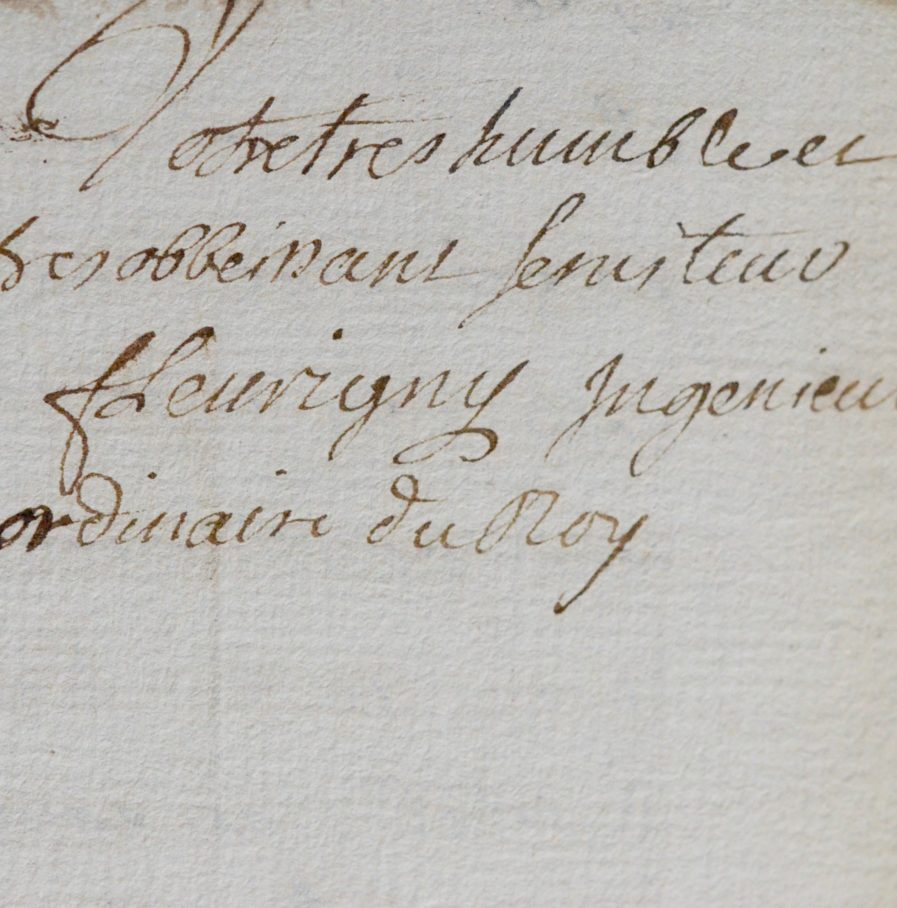 Votre tres humble et
tres obbeissant serviteur
fleurigny Ingenieur
ordinaire du Roy